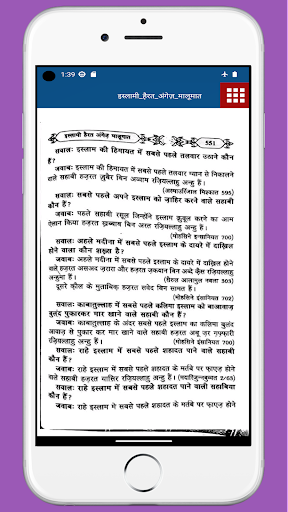 1:39
इस्लामी_हैरत_अंगेज़_मालूमात
इस्लामी हैरत अंगेज़ मालूमात 551
सवालः इस्लाम की हिमायत में सबसे पहले तलवार उठाने कौन
हैं?
जवाबः इस्लाम की हिमायत में सबसे पहले तलवार म्यान से निकालने
वाले सहाबी हज़रत ज़ुबैर बिन अव्वाम रज़ियल्लाहु अन्हु हैं।
595)
सवालः सबसे पहले अपने इस्लाम को ज़ाहिर करने वाले सहाबी
कौन हैं?
जवाबः पहले सहाबी रसूल जिन्होंने इस्लाम क़ुबूल करने का आम
ऐलान किया हज़रत ख़ब्बाब बिन अरत रज़ियल्लाहु अन्हु हैं।
(मोहसिने इन्सानियत 700)
सवालः अहले मदीना में सबसे पहले इस्लाम के दायरे में दाख़िल
होने वाला कौन शख़्स है?
जवाबः अहले मदीना में सबसे पहले इस्लाम के दायरे में दाख़िल होने
वाले हज़रत असअद ज़रारा और हज़रत ज़कवान बिन अब्दे क़ैस रज़ियल्लाहु
अन्हुमा हैं।
505)
दूसरे क़ौल के मुताबिक़ हज़रत सवेद बिन सामत हैं।
(मोहसिने इंसानियत 702)
सवालः काबातुल्लाह में सबसे पहले कलिमा इस्लाम को बाआवाज़
बुलंद पुकारकर मार खाने वाले सहाबी कौन हैं?
जवाबः काबातुल्लाह के अंदर सबसे पहले इस्लाम का कलिमा बुलंद
आवाज़ से पुकार कर मार खाने वाले सहाबी हज़रत अबू ज़र ग़फ़्फ़ारी
रज़ियल्लाहु अन्हु हैं।
(मोहसिने इंसानियत 700)
सवालः राहे इस्लाम में सबसे पहले शहादत पाने वाले सहाबी कौन
हैं?
जवाबः राहे इस्लाम में सबसे पहले शहादत के मर्तबे पर फाएज़ होने
वाले सहाबी हज़रत यासिर रज़ियल्लाहु अन्हु हैं। 2/65)
सवालः राहे इस्लाम में सबसे पहले शहादत पाने वाली सहाबिया
कौन हैं?
जवाबः राहे इस्लाम में सबसे पहले शहादत के मर्तबे पर फ़ाएज़ होने